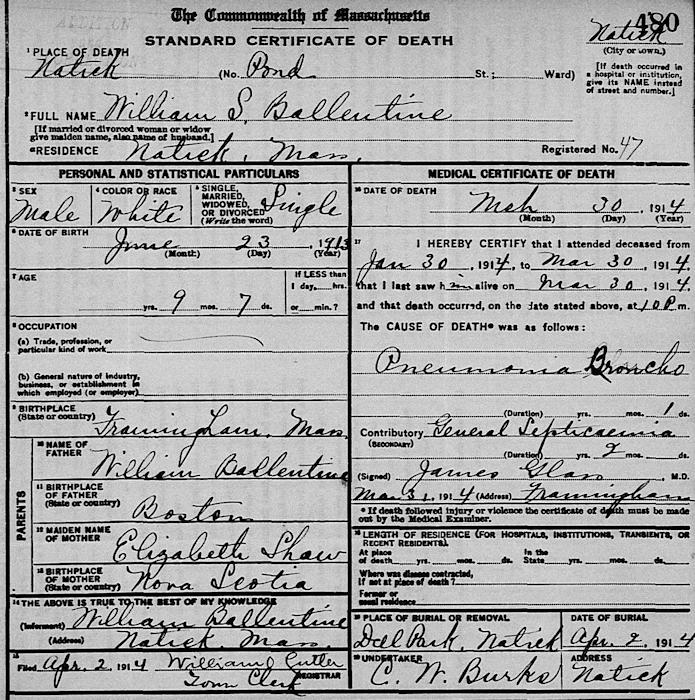 The Commonwealth of Massachusetts
480
STANDARD CERTIFICATE OF DEATH
Natick
(City or town.)
1 PLACE OF DEATH
Natick (No. Pond St.; Ward)
[If death occurred in a hospital or institution, give its NAME instead of street and number.]
2 FULL NAME William S. Ballentine
[If married or divorced woman or widow
give maiden name, also name of husband.]
RESIDENCE Natick, Mass. Registered No. 47
PERSONAL AND STATISTICAL PARTICULARS
3 SEX
Male
4 COLOR OR RACE
White
5 SINGLE,
MARRIED,
WIDOWED,
OR DIVORCED
(Write the word)
Single
6 DATE OF BIRTH
June 23, 1913
(Month) (Day) (Year)
7 AGE
yrs. 9 mos. 7 ds.
If LESS than
1 day, hrs.
or min.?
8 OCCUPATION
(a) Trade, profession, or
particular kind of work
(b) General nature of industry,
business, or establishment in
which employed (or employer)
9 BIRTHPLACE
(State or country)
Framingham, Mass.
PARENTS
10 NAME OF
FATHER
William Ballentine
11 BIRTHPLACE
OF FATHER
(State or country)
Boston
12 MAIDEN NAME
OF MOTHER
Elizabeth Shaw
13 BIRTHPLACE
OF MOTHER
(State or country)
Nova Scotia
14 THE ABOVE IS TRUE TO THE BEST OF MY KNOWLEDGE
(Informant) William Ballentine
(Address) Natick, Mass.
15
Filed Apr. 2, 1914 William J Cutler
Town Clerk REGISTRAR
MEDICAL CERTIFICATE OF DEATH
16 DATE OF DEATH
Mch 30, 1914
(Month) (Day) (Year)
17 I HEREBY CERTIFY that I attended deceased from
Jan 30, 1914, to Mar 30, 1914,
that I last saw him alive on Mar 30, 1914,
and that death occurred, on the date stated above, at 10 P.m.
The CAUSE OF DEATH* was as follows:
Pneumonia Broncho
(Duration) yrs. mos. 1 ds.
Contributory General Septicaemia
(SECONDARY)
(Duration) yrs. 2 mos. ds.
(Signed) James Glass, M.D.
Mar 31, 1914 (Address) Framingham
* If death followed injury or violence the certificate of death must be made
out by the Medical Examiner.
18 LENGTH OF RESIDENCE (FOR HOSPITALS, INSTITUTIONS, TRANSIENTS, OR
RECENT RESIDENTS).
At place
of death yrs. mos. ds.
In the
State yrs. mos. ds.
Where was disease contracted,
if not at place of death?
Former or
usual residence
19 PLACE OF BURIAL OR REMOVAL
Dell Park, Natick
DATE OF BURIAL
Apr. 2, 1914
20 UNDERTAKER
C. W. Burks
ADDRESS
Natick